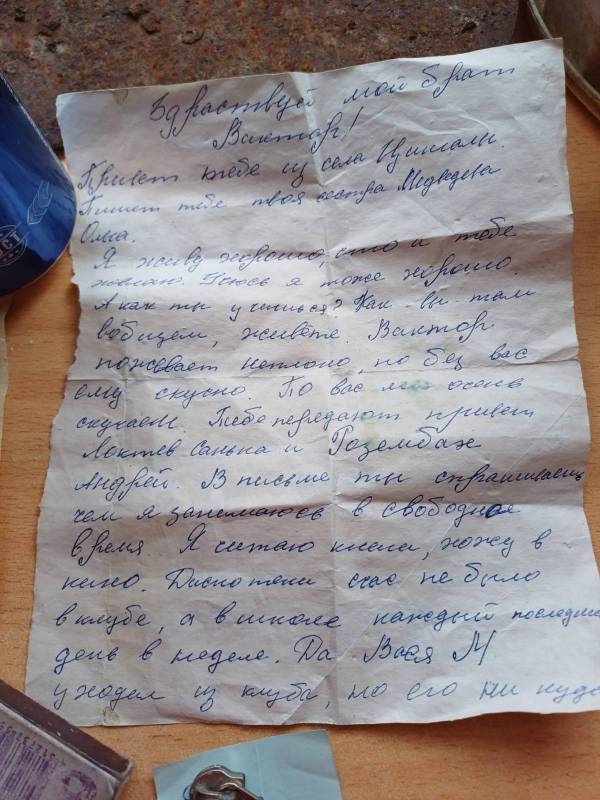 Здраствуй мой брат
Виктор!
Привет тебе из села
Пишет тебе твоя сестра Медведева
Ольга.
Я живу хорошо, что и тебе
желаю. Учюсь я тоже хорошо.
А как ты учишься? Как вы там
вобщем, живёте. Виктор
поживает неплохо, но без вас
ему скучно. По вас мы очень
скучаем. Тебе передают привет
Локтев Санька и Розембах
Андрей. В письме ты спрашиваешь
чем я занимаюсь в свободное
время Я читаю книги, хожу в
кино. Дискотеки счас не было
в клубе, а в школе каждый последний
день в неделе. Да Вася М
уходил из клуба, но его ни куда